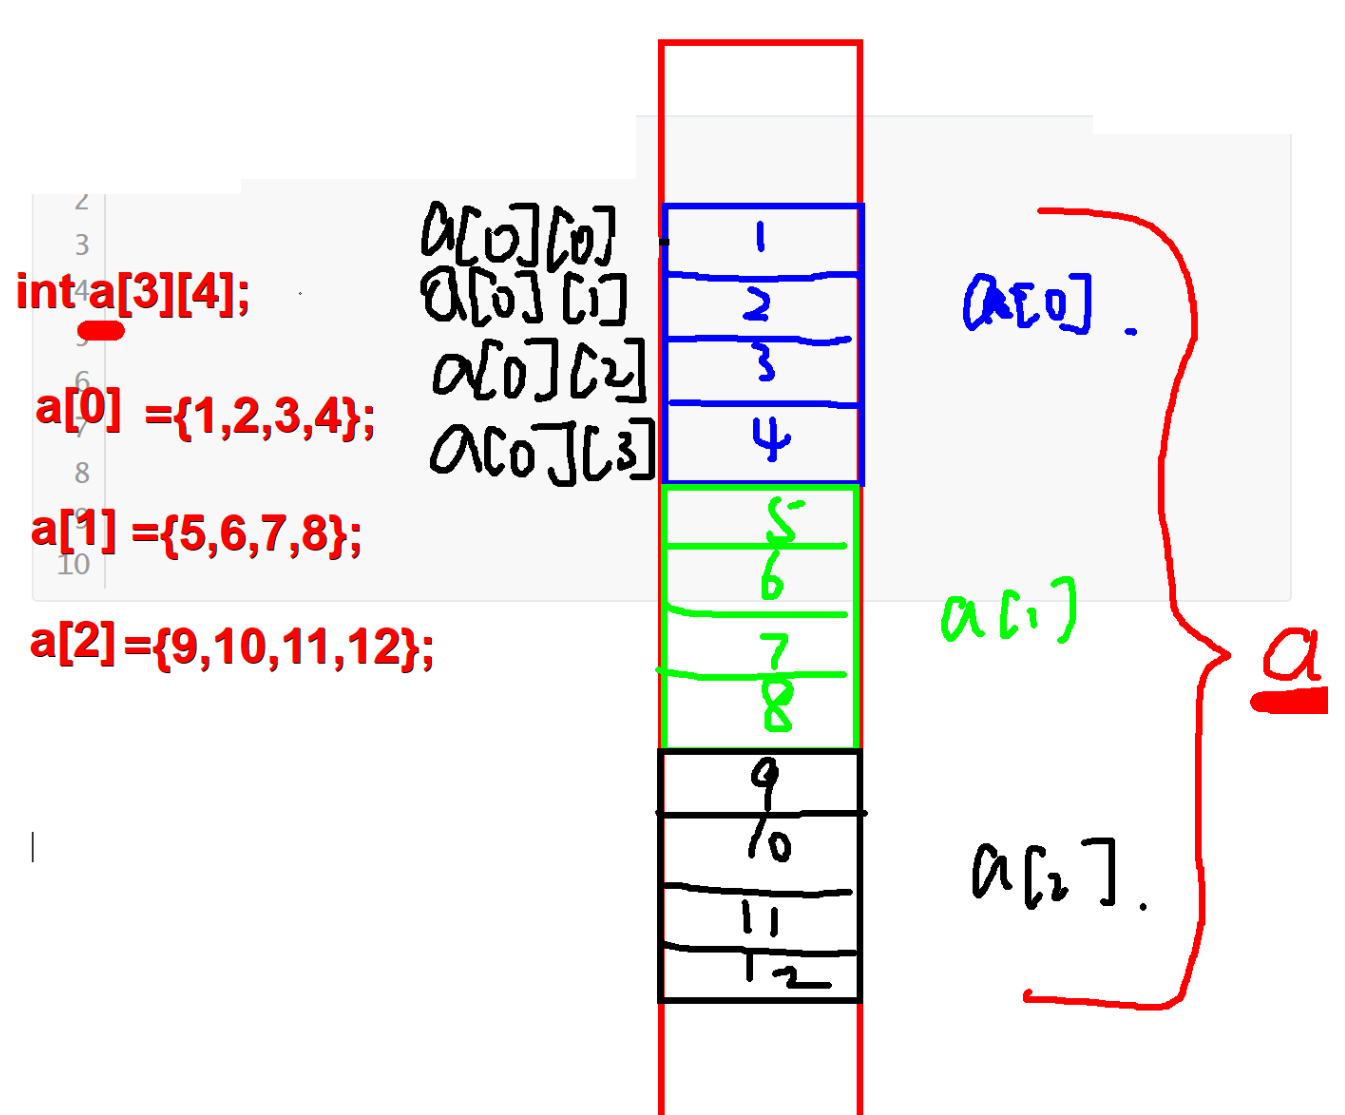 2
3
4
int a[3][4];
5
6
a[0] ={1,2,3,4};
7
8
9
a[1] ={5,6,7,8};
10
a[2]={9,10,11,12};
a[0][0]
a[0][1]
a[0][2]
a[0][3]
1
2
3
4
5
6
7
8
9
10
11
12
a[0].
a[1]
a[2].
a